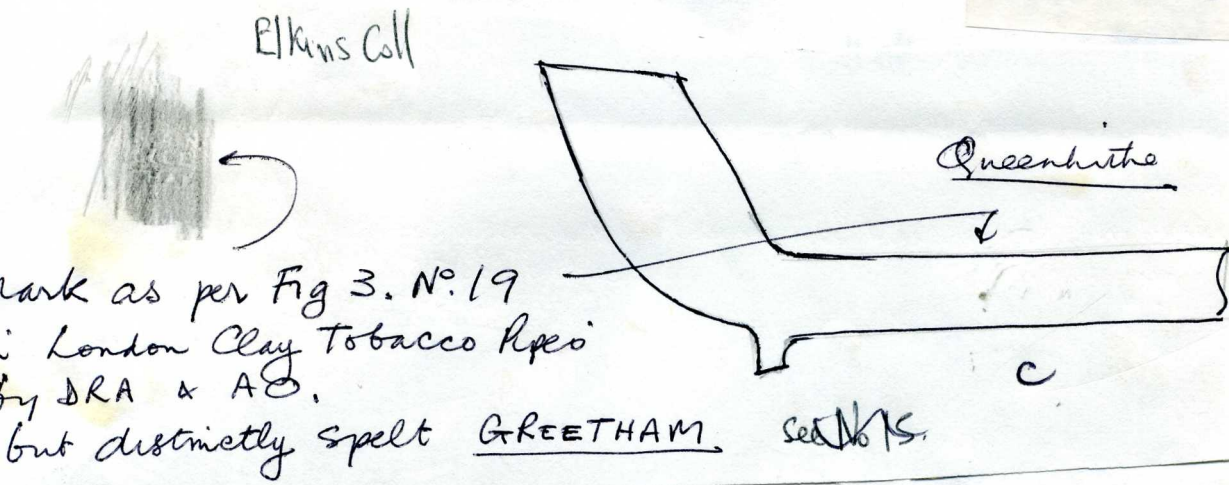 Elkins Coll
Queenhithe
mark as per Fig 3. No. 19
in London Clay Tobacco Pipes
by DRA & AO.
but distinctly spelt GREETHAM. see No 15.
C